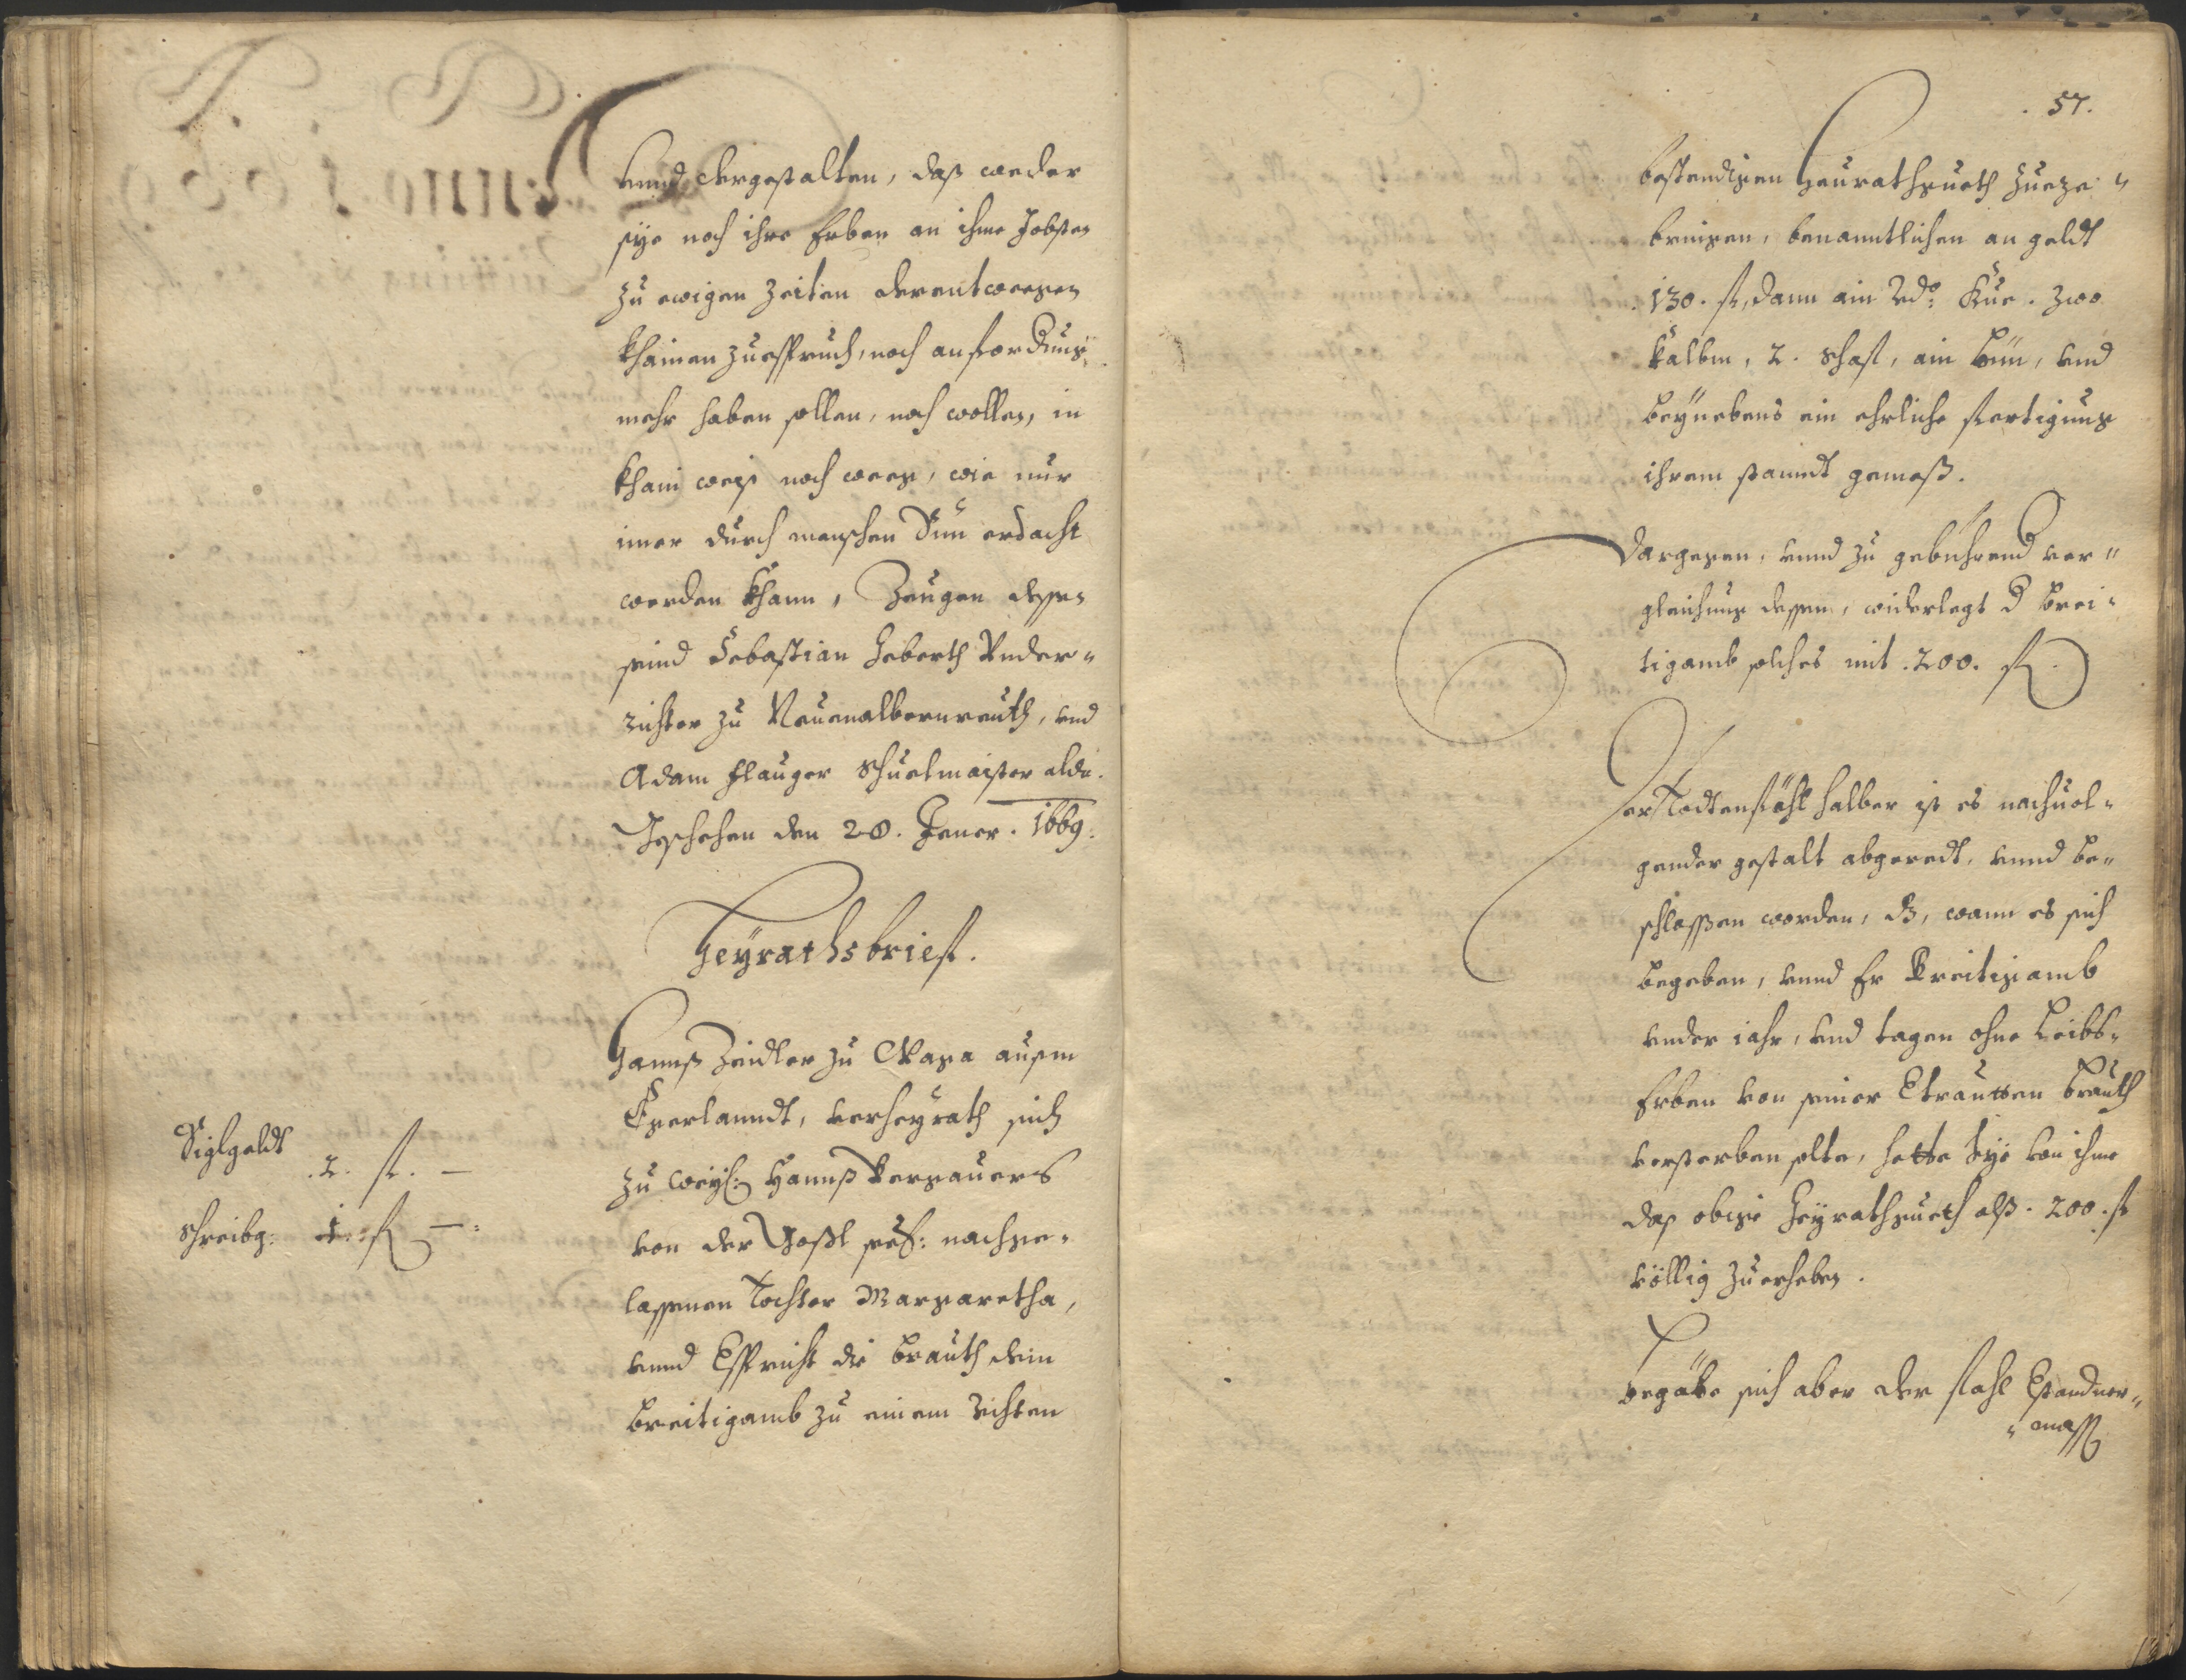 vnnd dergestalten, daß weder
sÿe noch ihre Erben an ihme Jobsten
zu ewigen Zeiten derentweegen
khainen zuespruch, noch anforderung,
mehr haben sollen, noch wollen, in
khain weiß noch weeg, wie nur
imer durch menschen Sinn erdacht
werden khann, Zeugen dessen
seind Sebastian Heberth Vnder-
richter zu Neuenalbernreuth, vnd
Adam Schuelmaister alda.
Geschehen den 28. Jener. 1669.
Heÿrathsbrieff.
Hannß Zeidler zu auszm
Egerlanndt, verheyrath sich
zu weÿl: Hannß
von der seel: nachge-
lassenen Tochter Margaretha,
vnnd verspricht die Brauth dem
Breitigamb zu einem rechten
Siglgeldt
.2. fl. —
Schreibg: 1. fl —:
. 57.
bestendigen Heurathgueth zueze-
bringen, benanntlichen an geldt
130. fl, dann ain Rdo: Kue. zwo
Kalbm, 2. Schaff, ain vnd
beÿnebens ein ehrliche fertigung
ihrem stanndt gemeß.
Dargegen, vnnd zu gebührend ver-
gleichung dessen, widerlegt d Brei-
tigamb solches mit .200. fl.
Der Todtenfähl halber ist es nachuol-
gender gestalt abgeredt, vnnd be-
schlossen worden, dz, wann es sich
begeben, vnnd Er Breitigamb
vnder iahr, vnd tagen ohne Leibs-
Erben von seiner vertrautten Brauth
versterben solte, hette Sÿe von ihme
das obige Heÿrathgueth alß .200. fl
völlig zuerheben.
Begäbe sich aber der fahl